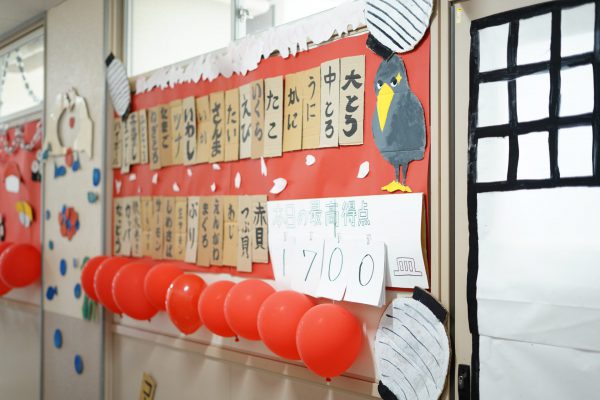 大とろ
中とろ
うに
かに
たこ
いくら
えび
たい
さんま
いわし
ツナ
たまご
赤貝
つぶ貝
あじ
えんがわ
まぐろ
ぶり
サーモン
本日の最高得点
1700